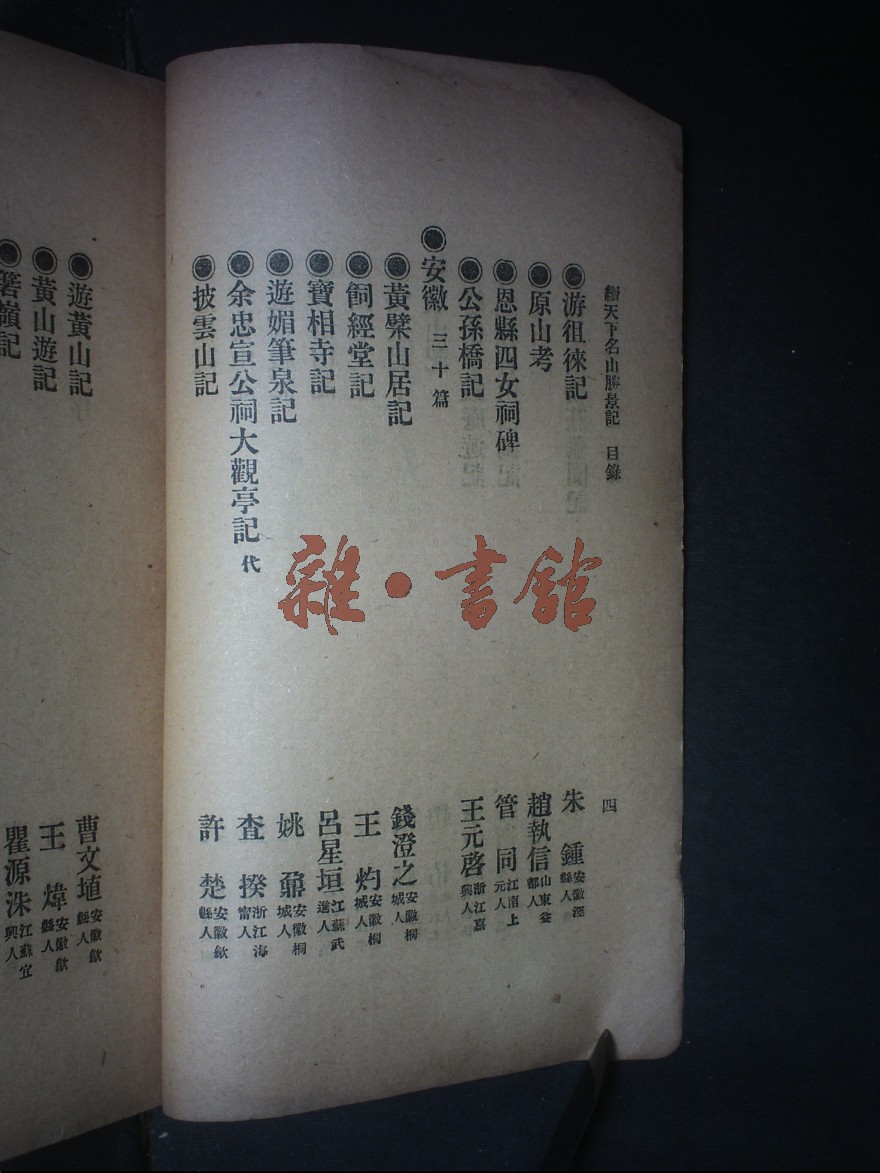 續天下名山勝景記 目錄 四
●游徂徠記 朱鍾 安徽涇縣人
●原山考 趙執信 山東益都人
●恩縣四女祠碑 管同 江南上元人
●公孫橋記 王元啓 浙江嘉興人
●安徽 三十篇
●黃檗山居記 錢澄之 安徽桐城人
●飼經堂記 王灼 安徽桐城人
●寶相寺記 呂星垣 江蘇武進人
●遊媚筆泉記 姚鼐 安徽桐城人
●余忠宣公祠大觀亭記 代 查揆 浙江海甯人
●披雲山記 許楚 安徽歙縣人
●遊黃山記 曹文埴 安徽歙縣人
●黃山遊記 王煒 安徽歙縣人
●箬嶺記 瞿源洙 江蘇宜興人
雜·書館